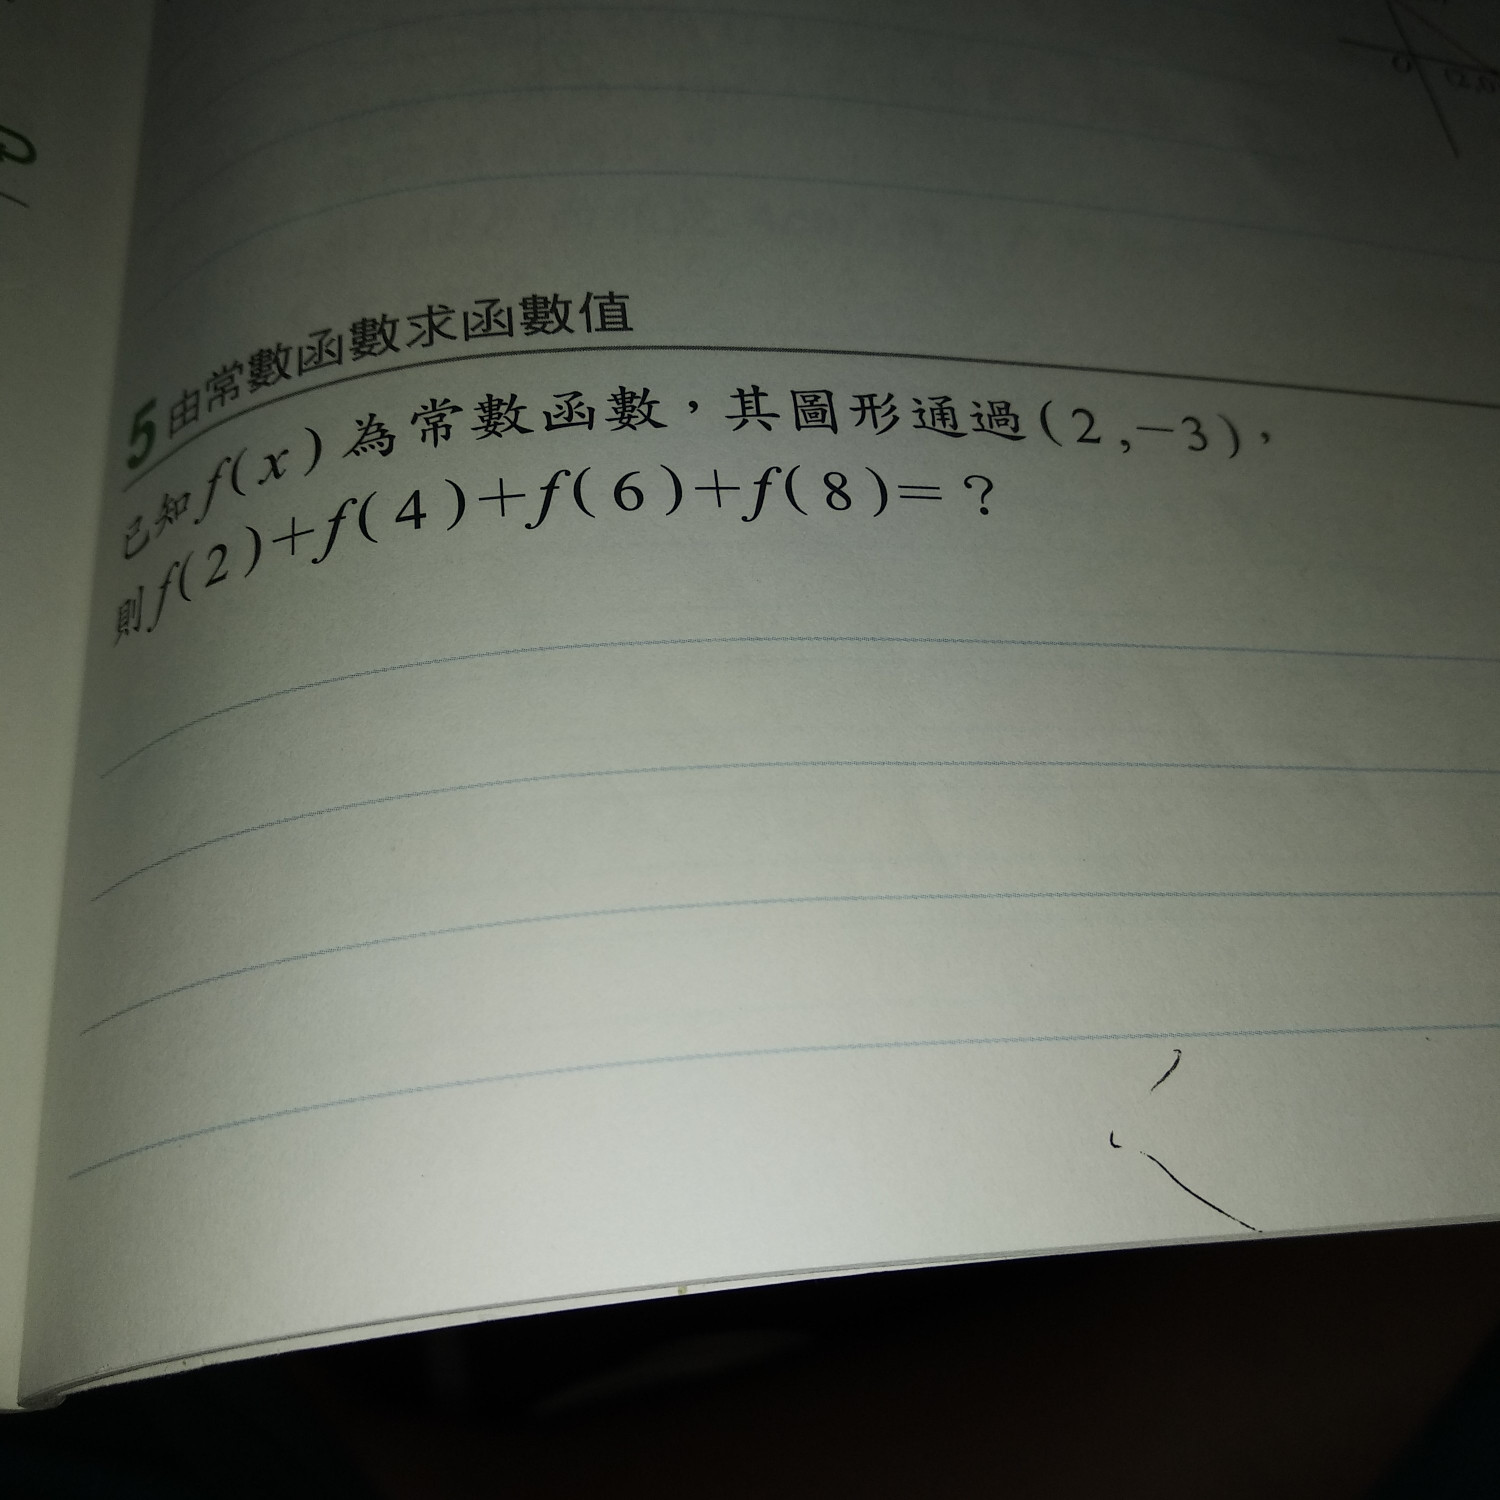 5 由常數函數求函數值
已知f(x)為常數函數，其圖形通過(2,−3)，
則f(2)+f(4)+f(6)+f(8)=？